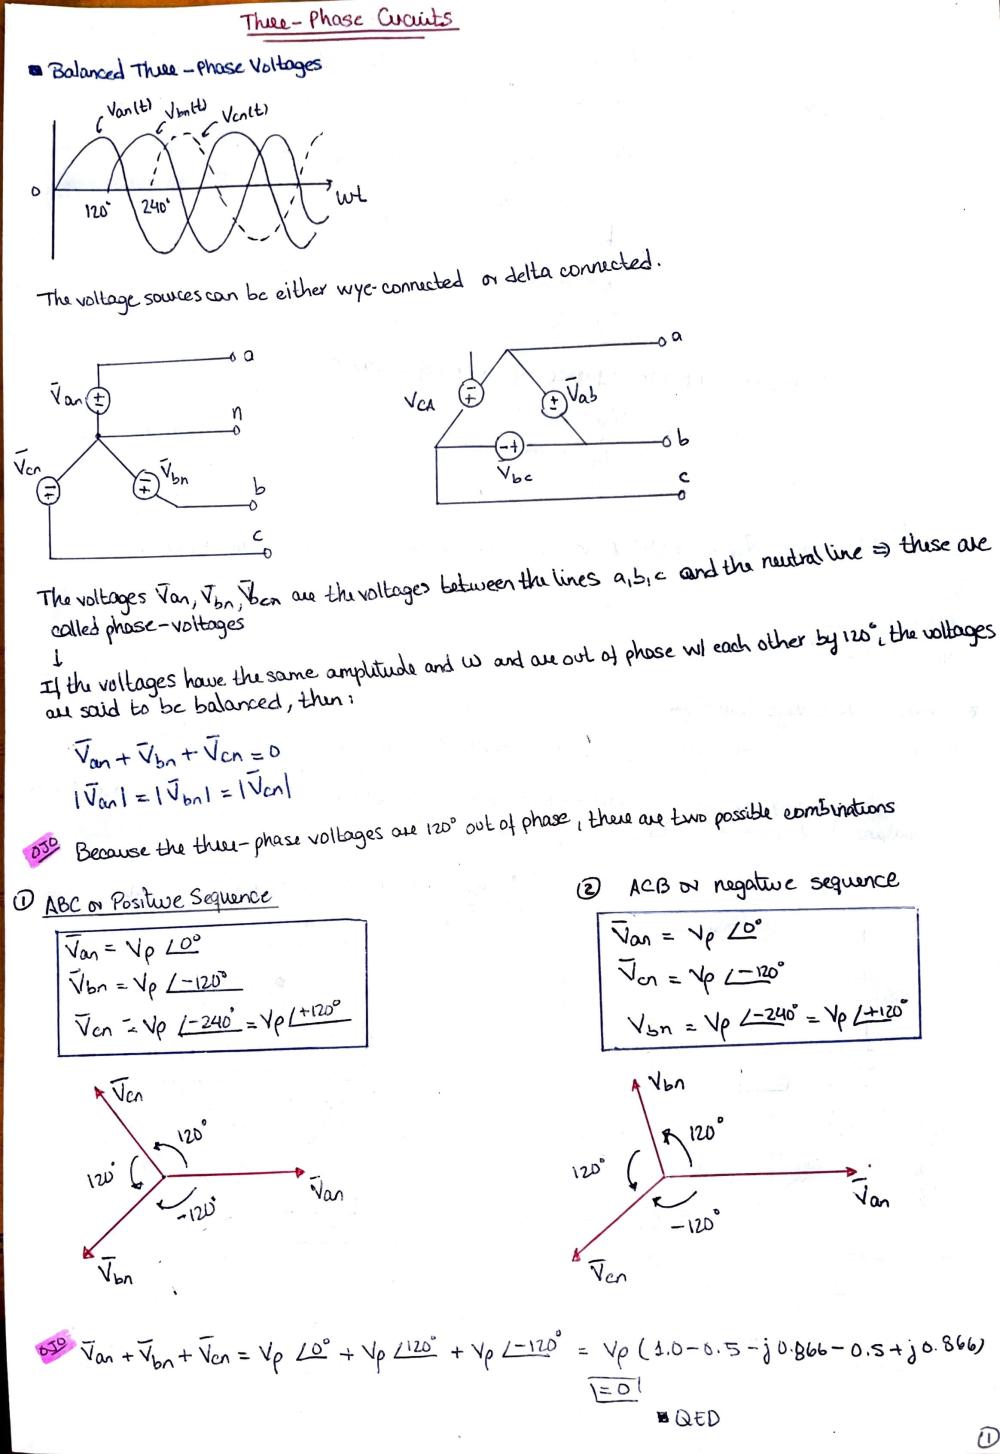 Three-Phase Circuits
■ Balanced Three-Phase Voltages
Van(t) Vbn(t) Vcn(t)
0
120° 240° wt
The voltage sources can be either wye-connected or delta connected.
a
V̄an
n
V̄cn
V̄bn
b
c
a
VCA
V̄ab
b
V̄bc
c
The voltages V̄an, V̄bn, V̄cn are the voltages between the lines a,b,c and the neutral line ⇒ these are
called phase-voltages
↓
If the voltages have the same amplitude and ω and are out of phase w/ each other by 120°, the voltages
are said to be balanced, then:
V̄an + V̄bn + V̄cn = 0
|V̄an| = |V̄bn| = |V̄cn|
OJO Because the three-phase voltages are 120° out of phase, there are two possible combinations
① ABC or Positive Sequence
V̄an = Vp ∠0°
V̄bn = Vp ∠-120°
V̄cn = Vp ∠-240° = Vp ∠+120°
② ACB or negative sequence
V̄an = Vp ∠0°
V̄cn = Vp ∠-120°
Vbn = Vp ∠-240° = Vp ∠+120°
V̄cn
120°
120°
V̄an
-120°
V̄bn
Vbn
120°
120°
V̄an
-120°
V̄cn
OJO V̄an + V̄bn + V̄cn = Vp ∠0° + Vp ∠120° + Vp ∠-120° = Vp (1.0-0.5-j0.866-0.5+j0.866)
=0
■ QED
1